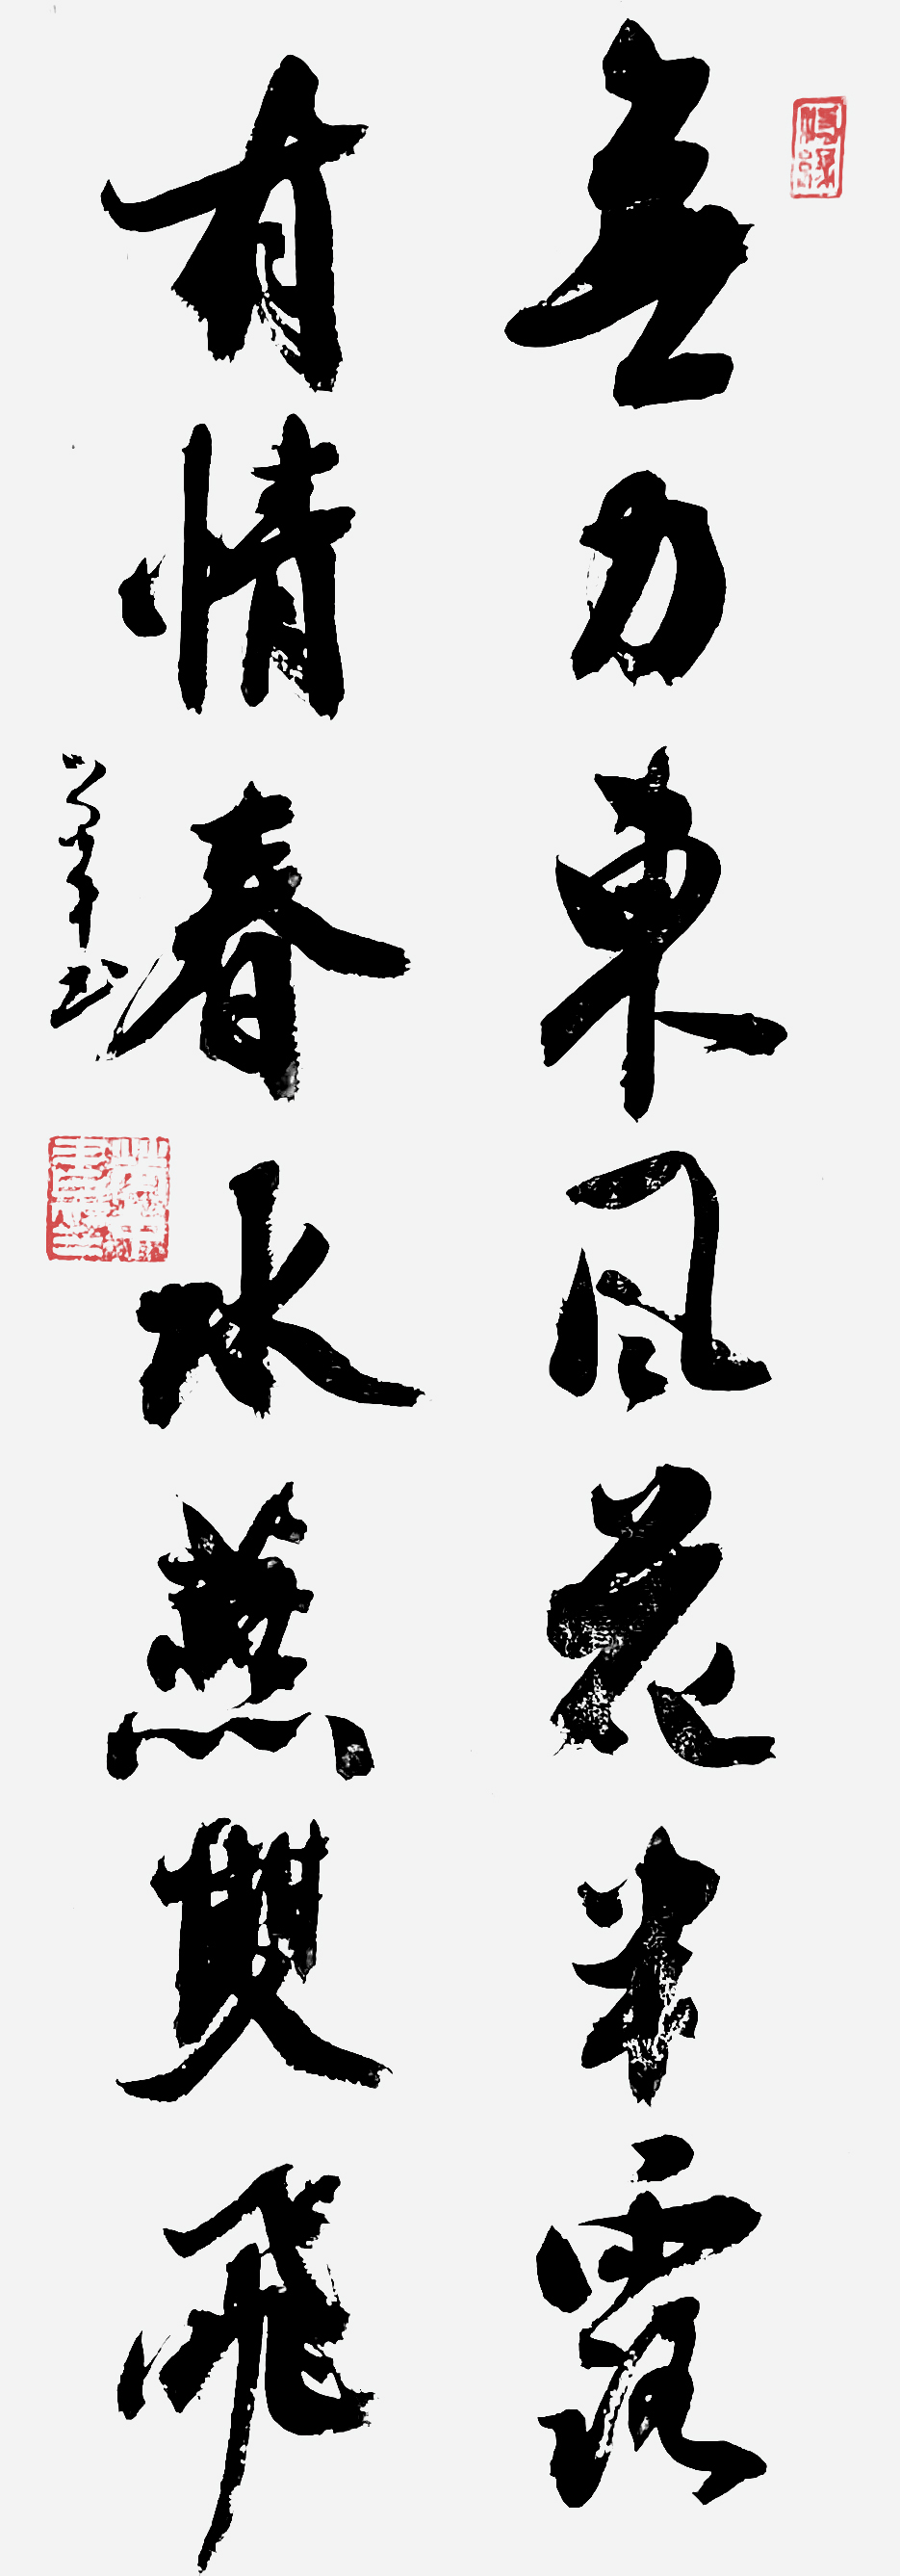 無力東風花半露
有情春水燕雙飛